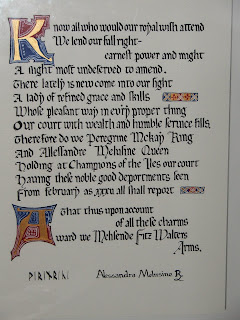 Know all who would our royal wish attend
We lend our full right-
earnest power and might
A slight most undeserved to amend.
There lately is new come into our sight
A lady of refined grace and skills
Whose pleasant way in ev'ry proper thing
Our court with wealth and humble service fills,
Therefore do we Peregrine Mckay King
And Allessandre Melusine Queen
Holding at Champions of the Iles our court
Having these noble good deportments seen
From February as xxxvi all shall report
That thus upon account
of all these charms
ward we Mehsende Fitz Walters
Arms.
Alessandra Melusine R